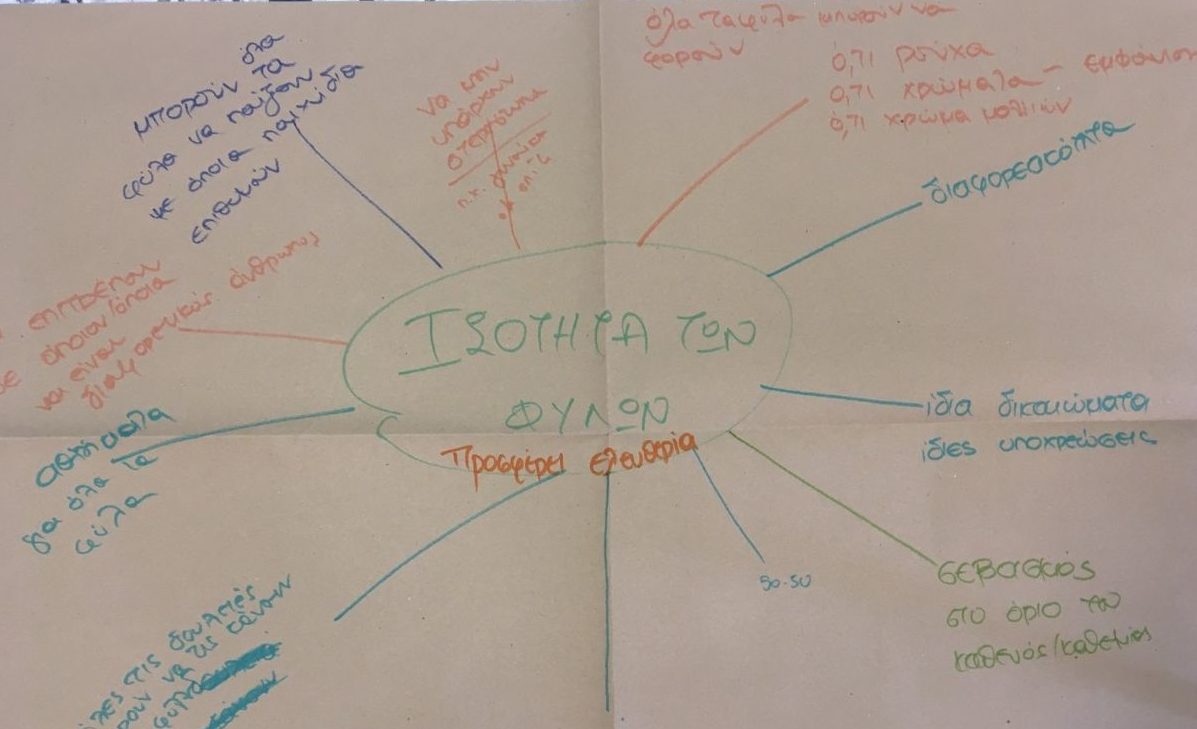 μπορούν όλα
τα
φύλα να παίζουν
με όποια παιχνίδια
επιθυμούν
να μην
υπάρχουν
στερεότυπα
π.χ.
όλα τα φύλα μπορούν να
φορούν
ό,τι ρούχα
ό,τι χρώματα - εμφάνιση
ό,τι χρώμα μαλλιών
διαφορετικότητα
επιτρέπουν
όποιον/όποια
να είναι
διαφορετικός άνθρωπος
ΙΣΟΤΗΤΑ ΤΩΝ
ΦΥΛΩΝ
Προσφέρει ελευθερία
ίδα δικαιώματα
ίδιες υποχρεώσεις
αθλήματα
για όλα τα
φύλα
50-50
σεβασμός
στο όριο του
καθενός/καθεμίας
όλες τις δουλειές
να τις κάνουν
φύλα